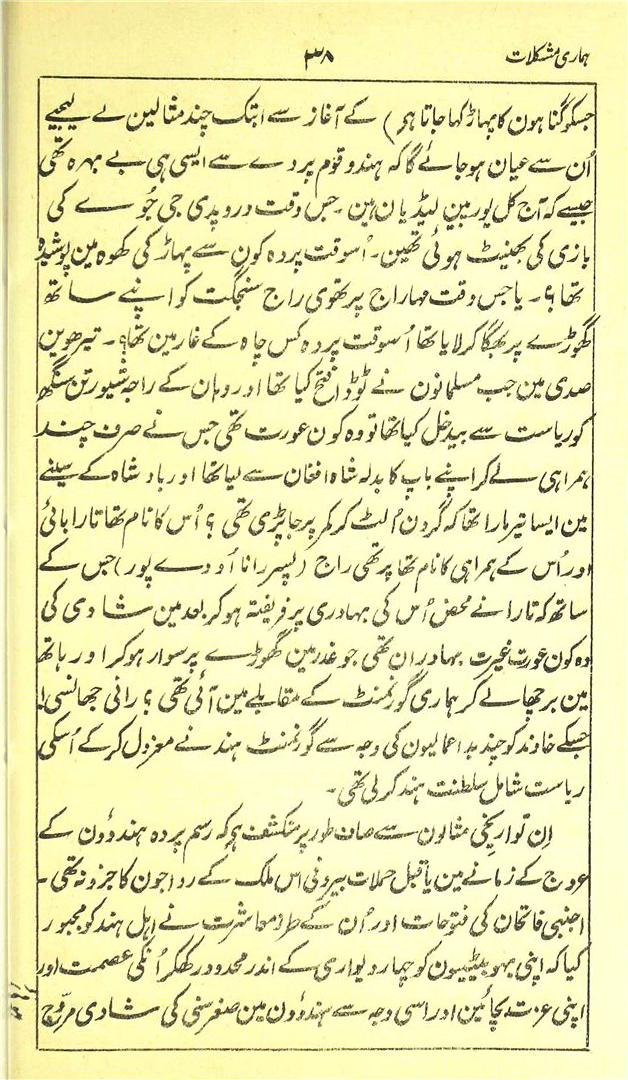 ہماری مشکلات
۳۸
جسکو گناہون کا پہاڑ کہا جاتا ہی) کے آغاز سے ابتک چند مثالین لے لیجیے
اُن سے عیان ہو جائے گا کہ ہندو قوم پردے سے ایسی ہی بے بہرہ تھی
جیسے کہ آج کل یورپین لیڈیان ہین۔ جس وقت دروپدی جی جُوے کی
بازی کی بھینٹ ہوئی تھین۔ اُسوقت پردہ کون سے پہاڑ کی کھوہ مین پوشیدہ
تھا؟۔ یا جس وقت مہاراج پرتھوی راج سنجگت کو اپنے ساتھ
گھوڑے پر بھگا کر لایا تھا اُسوقت پردہ کس چاہ کے غار مین تھا؟۔ تیرھوین
صدی مین جب مسلمانون نے ٹوڈا فتح کیا تھا اور وہان کے راجہ شیورتن سنگھ
کو ریاست سے بیدخل کیا تھا تو وہ کون عورت تھی جس نے صرف چند
ہمراہی لے کر اپنے باپ کا بدلہ شاہ افغان سے لیا تھا اور بادشاہ کے سینے
مین ایسا تیر مارا تھا کہ گردن اُلٹ کر کمر پر جا پڑی تھی ؟ اُس کا نام تھا تارا بائی
اور اُس کے ہمراہی کا نام تھا پرتھی راج (پسر رانا اُودے پور) جس کے
ساتھ کہ تارا نے محض اُس کی بہادری پر فریفتہ ہوکر بعد مین شادی کی
وہ کون عورت غیرت بہادران تھی جو غدر مین گھوڑے پر سوار ہوکر اور ہاتھ
مین برچھا لے کر ہماری گورنمنٹ کے مقابلے مین آئی تھی ؟ رانی جھانسی!
جسکے خاوند کو چند بداعمالیون کی وجہ سے گورنمنٹ ہند نے معزول کرکے اُسکی
ریاست شامل سلطنت ہند کرلی تھی۔
اِن تواریخی مثالون سے صاف طور پر منکشف ہی کہ رسم پردہ ہندوٴون کے
عروج کے زمانے مین یا قبل حملات بیرونی اس ملک کے رواجون کا جزو نہ تھی۔
اجنبی فاتحان کی فتوحات اور اُن کے طرز معاشرت نے اہل ہند کو مجبور
کیا کہ اپنی بہو بیٹیون کو چہار دیواری کے اندر محدود رکھکر اُنکی عصمت اور
اپنی عزت بچائین اور اسی وجہ سے ہندوٴون مین صغرسنی کی شادی مروّج